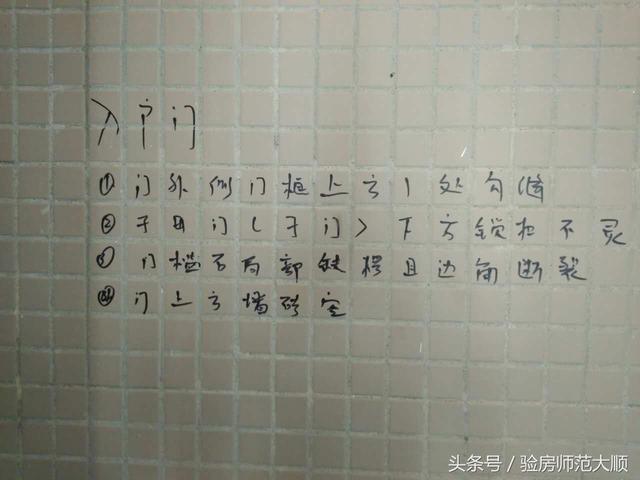 入户门
① 门外侧门框上方1处勾缝
② 子母门(子门)下方锁扣不灵
③ 门槛石局部缺损且边角断裂
④ 门上方墙砖空
头条号/验房师范大顺